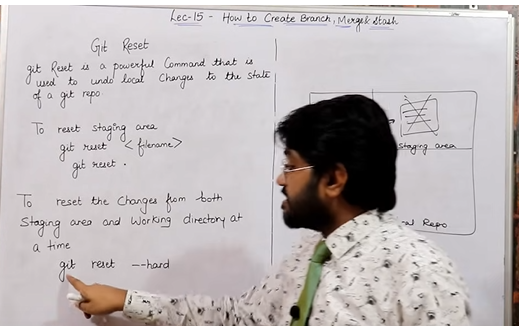 Lec-15 - How to Create Branch, Merge & Stash
Git Reset
git Reset is a powerful Command that is
used to undo local Changes to the state
of a git repo.
To reset staging area
git reset <filename>
git reset .
To reset the Changes from both
Staging area and Working directory at
a time
git reset --hard
Staging area
Repo